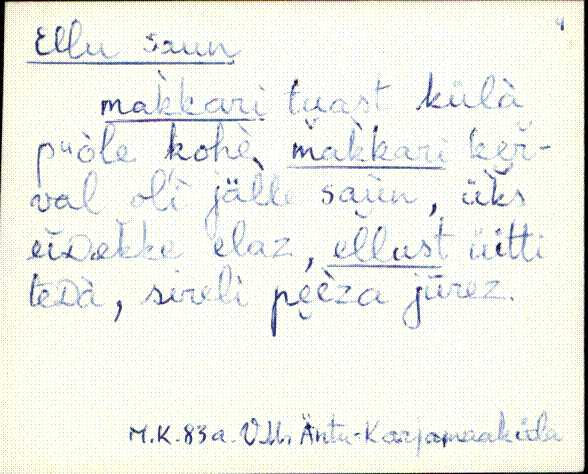 4
Ellu saun
makkari tuast külà
puòle kohè, makkari ker-
val oli jälle saun, üks
eiDekke elaz, ellust üitti
teDà, sireli pèèza jurez.
M.K. 83 a. V.M. Äntu-Karjamaaküla